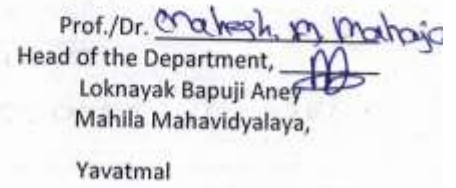 Prof./Dr. Mahesh. M Mahajo
Head of the Department,
Loknayak Bapuji Aney
Mahila Mahavidyalaya,
Yavatmal